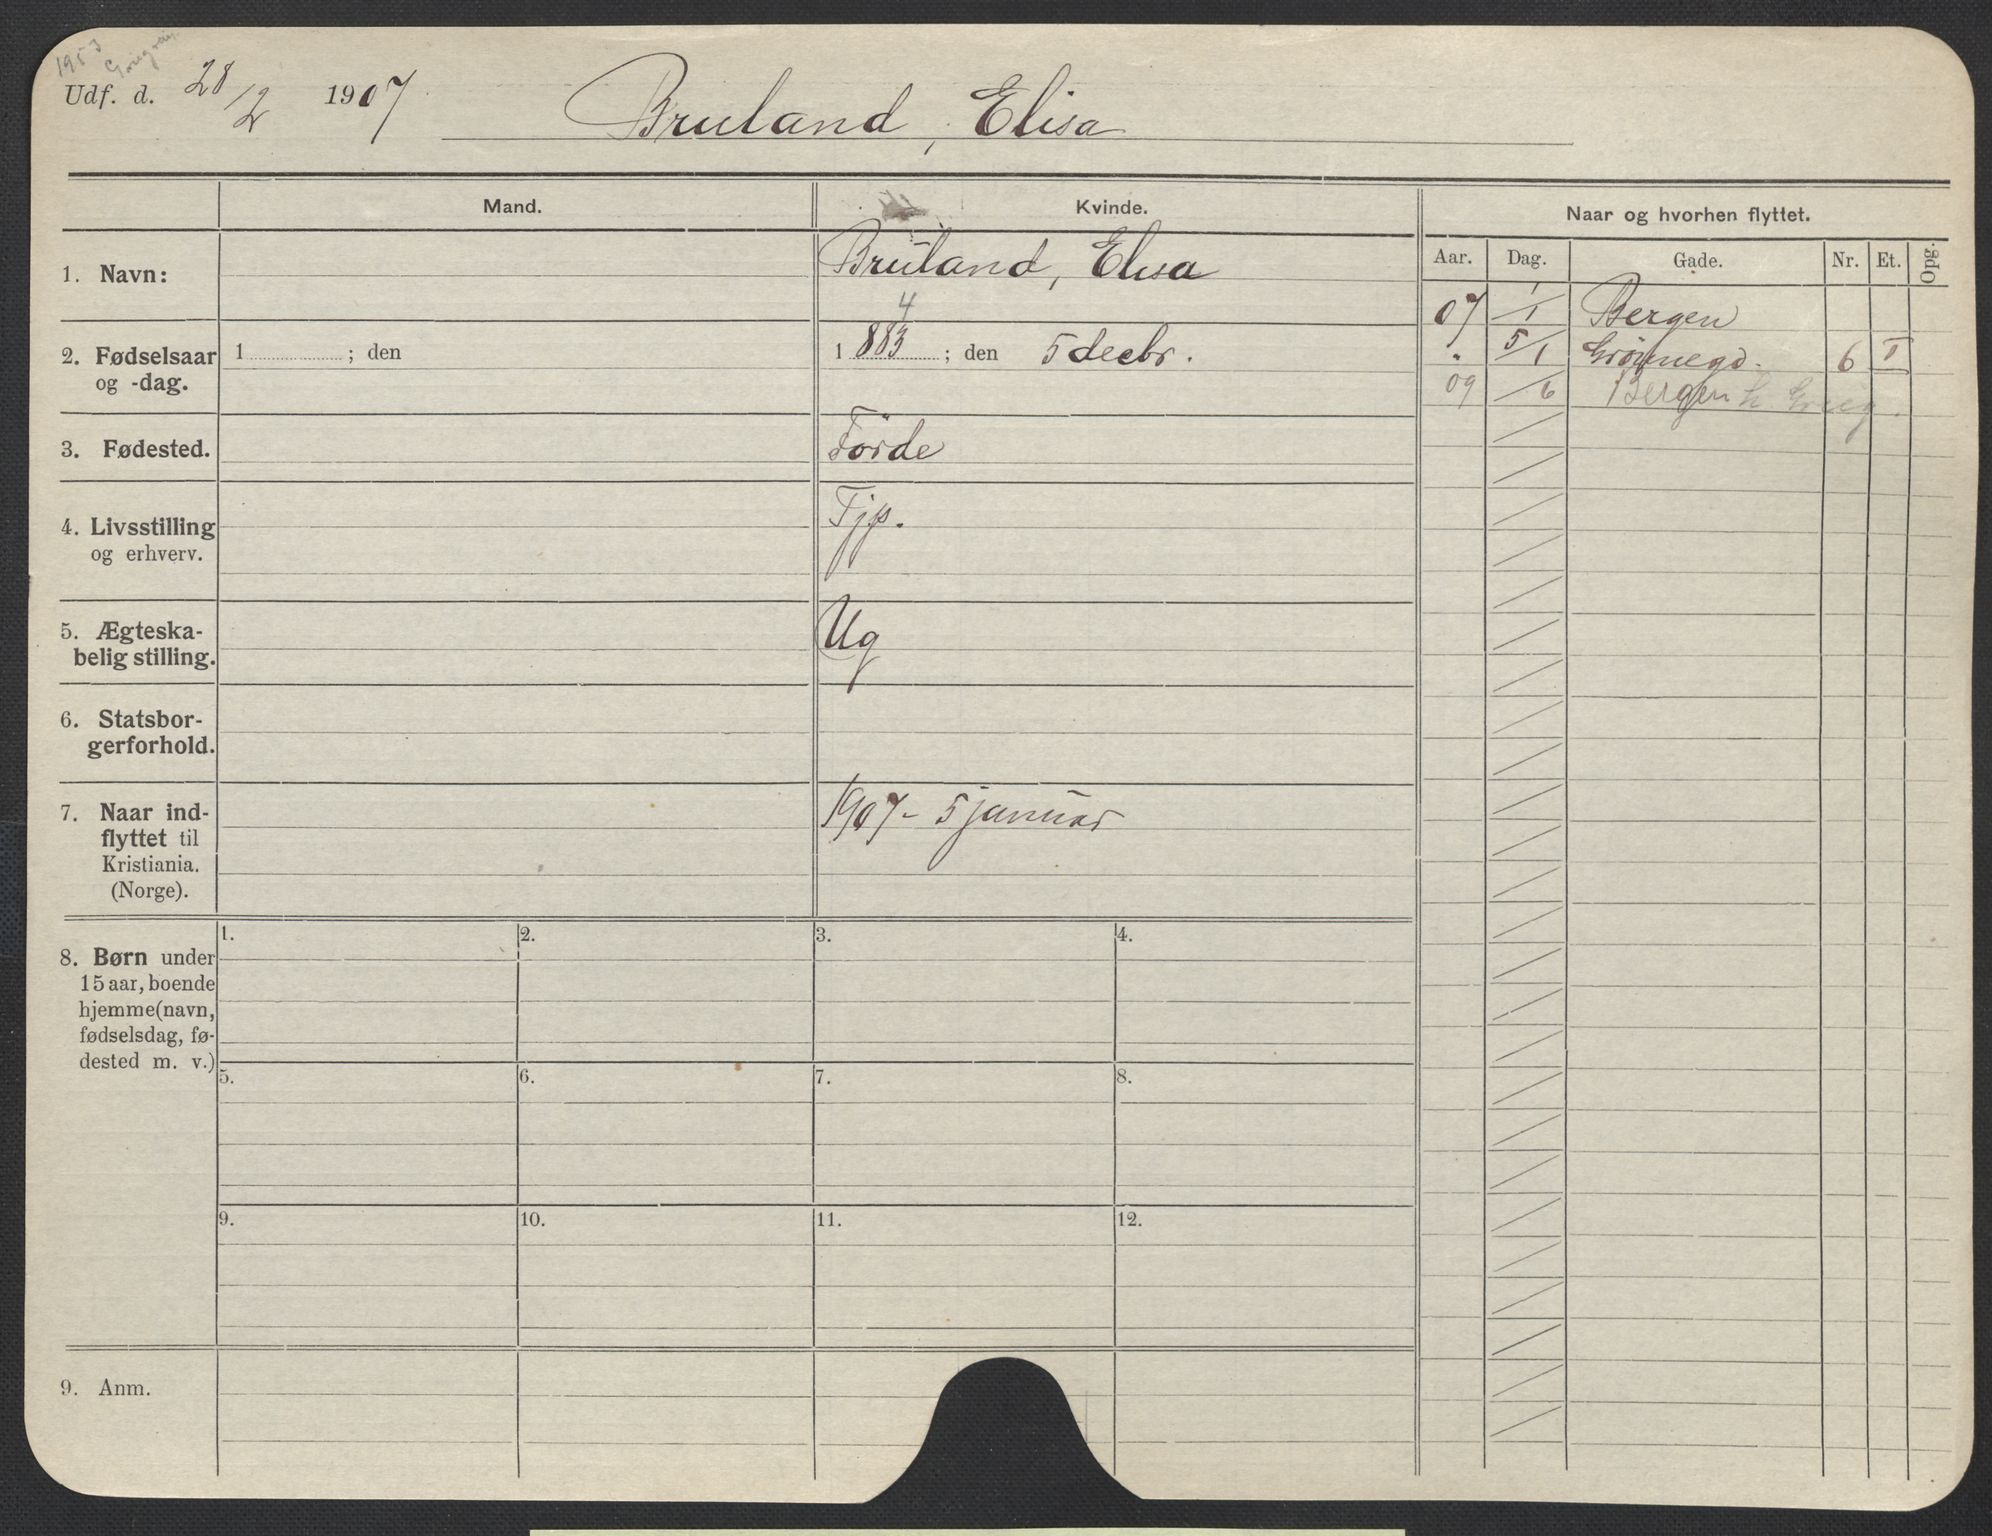 1953
Udf. d. 28/2 1907 Bruland, Elisa
Mand. Kvinde. Naar og hvorhen flyttet.
Aar. Dag. Gade. Nr. Et. Opg.
1. Navn: Bruland, Elisa
07 /1 Bergen
4
2. Fødselsaar og -dag. 1 ; den 1 883 ; den 5 decbr.
" 5/1 Grönnegd. 6 I
09 /6 Bergen
3. Fødested. Förde
4. Livsstilling Tjp.
og erhverv.
5. Ægteska- Ug
belig stilling.
6. Statsbor-
gerforhold.
7. Naar ind- 1907 - 5 januar
flyttet til
Kristiania.
(Norge).
8. Børn under
15 aar, boende
hjemme (navn,
fødselsdag, fø-
dested m. v.)
1. 2. 3. 4.
5. 6. 7. 8.
9. 10. 11. 12.
9. Anm.